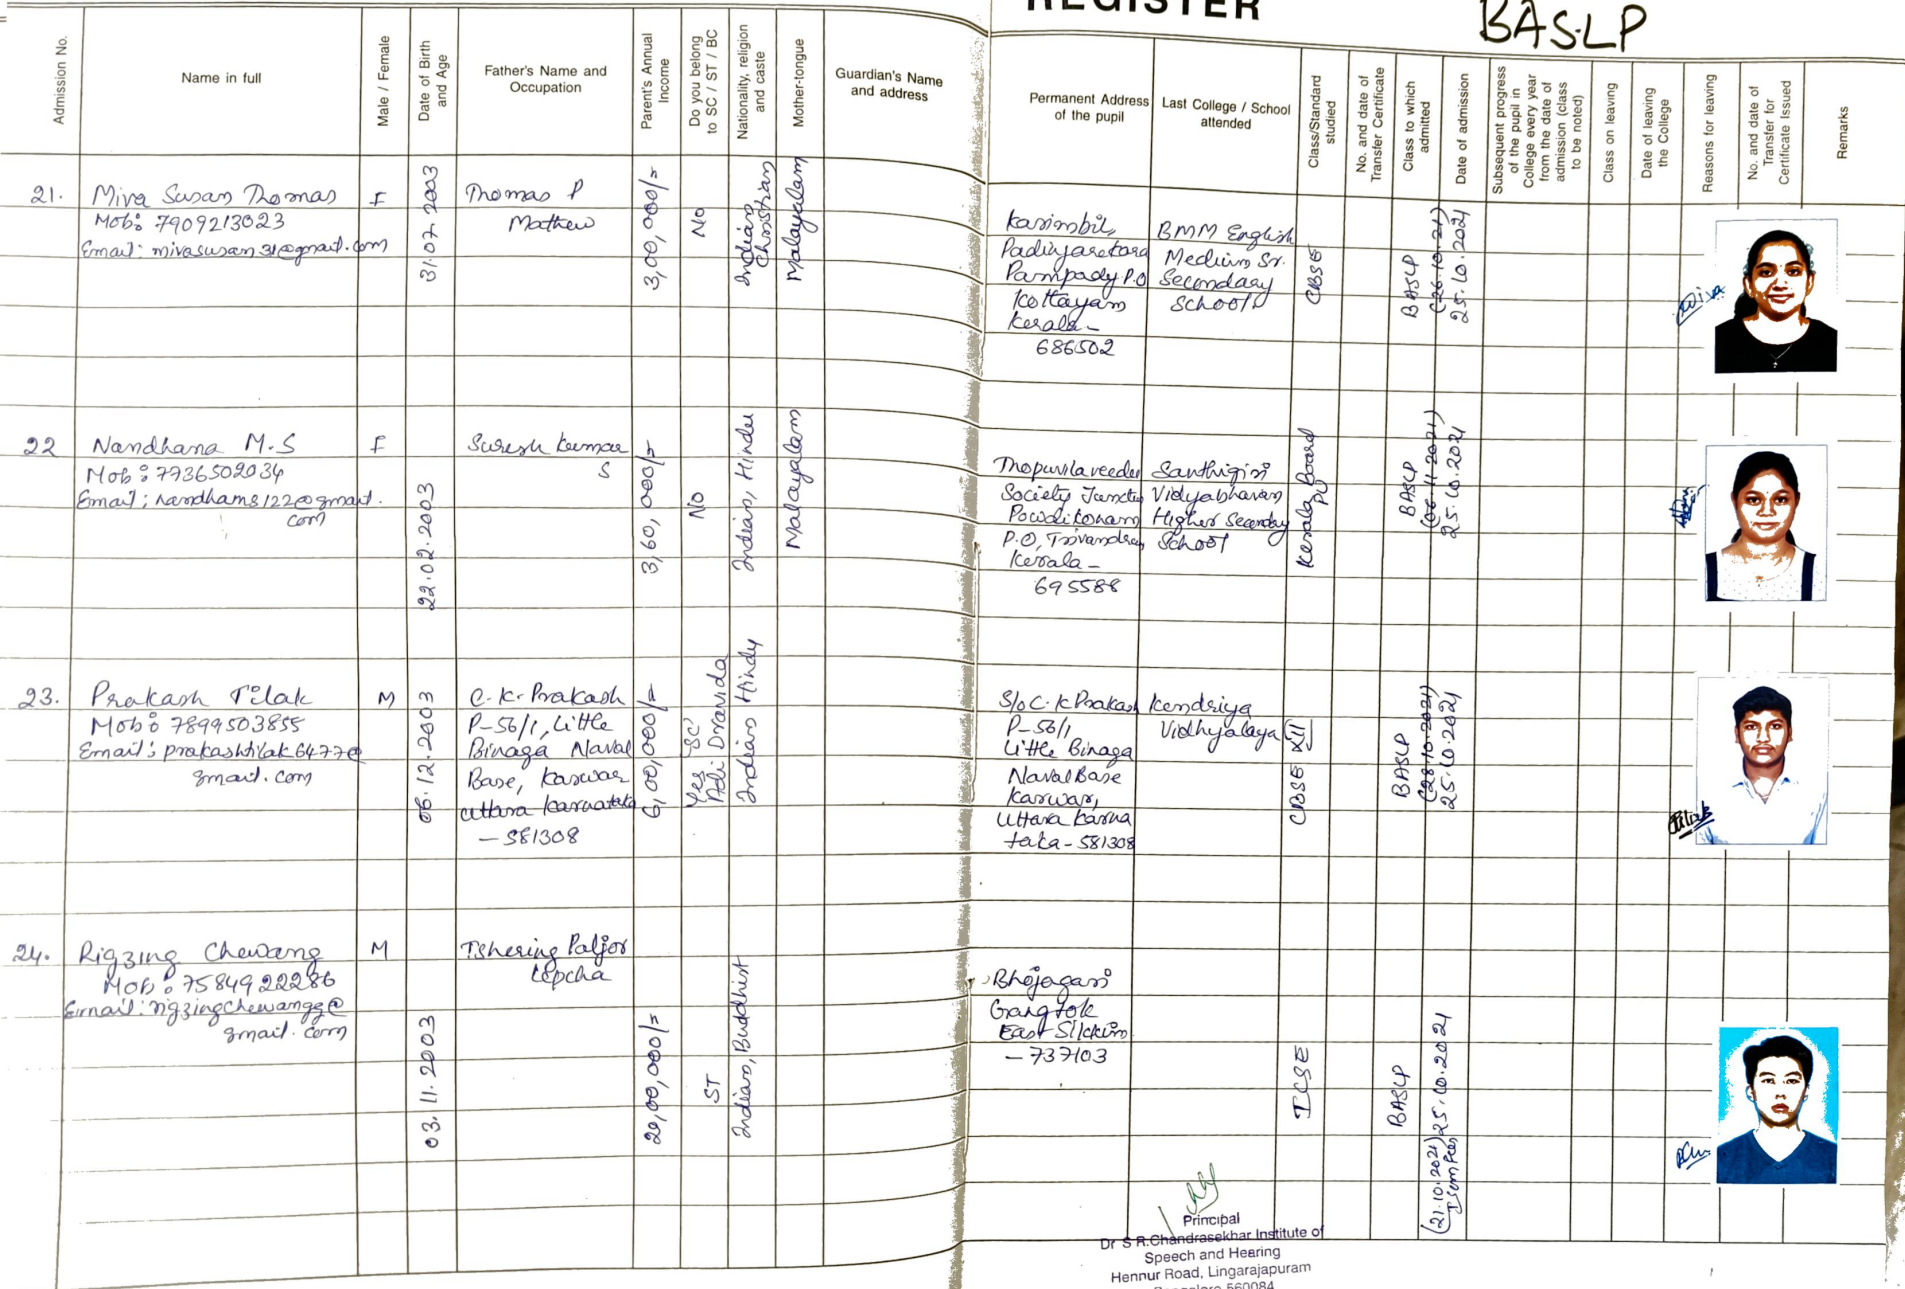 REGISTER
BASLP
Admission No.
Name in full
Male / Female
Date of Birth and Age
Father's Name and Occupation
Parent's Annual Income
Do you belong to SC / ST / BC
Nationality, religion and caste
Mother-tongue
Guardian's Name and address
Permanent Address of the pupil
Last College / School attended
Class/Standard studied
No. and date of Transfer Certificate
Class to which admitted
Date of admission
Subsequent progress of the pupil in College every year from the date of admission (class to be noted)
Class on leaving
Date of leaving the College
Reasons for leaving
No. and date of Transfer for Certificate Issued
Remarks
21.
Miva Susan Thomas
Mob: 7909213023
Email: mivasusan31@gmail.com
F
31.07.2003
Thomas P
Mathew
3,00,000/=
No
Indian
Christian
Malayalam
Karimbil,
Padinjarekara
Pampady P.O
Kottayam
Kerala-
686502
BMM English
Medium Sr.
Secondary
School
CBSE
BASLP
(26.10.21)
25.10.2021
Miva
22
Nandhana M.S
Mob: 7736502034
Email: nandhams122@gmail.
com
F
22.02.2003
Suresh Kumar
S
3,60,000/=
No
Indian, Hindu
Malayalam
Society Juncty
Powdikonam
P.O,
Kerala-
695588
Santhigiri
Vidyabhavan
Higher Seconday
School
Kerala Board
PU
BASLP
(06.11.2021)
25.10.2021
23.
Prakash Tilak
Mob: 7899503855
Email: prakashtilak6477@
gmail.com
M
06.12.2003
C.K. Prakash
P-56/1, Little
Binaga Naval
Base, Karwar
Uttara Karnataka
- 581308
6,00,000/=
Yes 'SC'
Adi Dravida
Indian Hindu
S/o C.K Prakash
P-56/1,
Little Binaga
Naval Base
Karwar,
Uttara Karna
taka - 581308
Kendriya
Vidhyalaya
CBSE XII
BASLP
(28.10.2021)
25.10.2021
Tilak
24.
Rigzing Chewang
Mob: 7584922286
Email: rigzingchewangg@
gmail.com
M
03.11.2003
Tshering Paljor
Lepcha
20,00,000/=
ST
Indian, Buddhist
Bhojogari
Gangtok
East Sikkim
- 737103
ICSE
BASLP
25.10.2021
(21.10.2021)
I sem Fees
Principal
Dr S R.Chandrasekhar Institute of
Speech and Hearing
Hennur Road, Lingarajapuram
Bangalore 560084